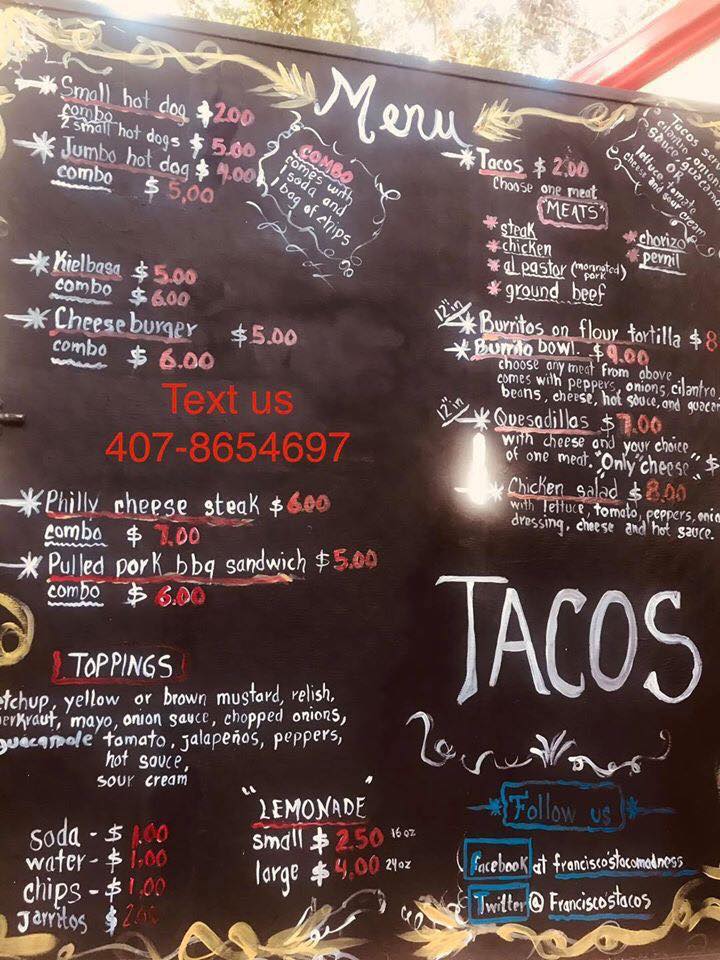 Menu
Small hot dog $2.00
combo
2 small hot dogs $5.00
Jumbo hot dog $4.00
combo $5.00
COMBO
comes with
1 soda and
1 bag of chips
Kielbasa $5.00
combo $6.00
Cheeseburger $5.00
combo $6.00
Text us
407-8654697
Philly cheese steak $6.00
combo $7.00
Pulled pork bbq sandwich $5.00
combo $6.00
TOPPINGS
etchup, yellow or brown mustard, relish,
erkraut, mayo, onion sauce, chopped onions,
guacamole tomato, jalapeños, peppers,
hot sauce,
sour cream
soda - $1.00
water - $1.00
chips - $1.00
Jarritos $2.00
"LEMONADE"
small $2.50 16oz
large $4.00 24oz
Tacos $2.00
Choose one meat
"MEATS"
steak
chicken
al pastor (marinated pork)
ground beef
chorizo
pernil
Tacos ser
cilantro onion
sauce guacamo
OR
lettuce tomato
cheese and sour cream
12"in Burritos on flour tortilla $8
Burrito bowl. $9.00
choose any meat from above
comes with peppers, onions, cilantro
beans, cheese, hot sauce, and guacam
12"in Quesadillas $7.00
with cheese and your choice
of one meat. "Only cheese" $
Chicken salad $8.00
with lettuce, tomato, peppers, onio
dressing, cheese and hot sauce.
TACOS
Follow us
facebook at francisco'stacomadness
Twitter @ Francisco'stacos